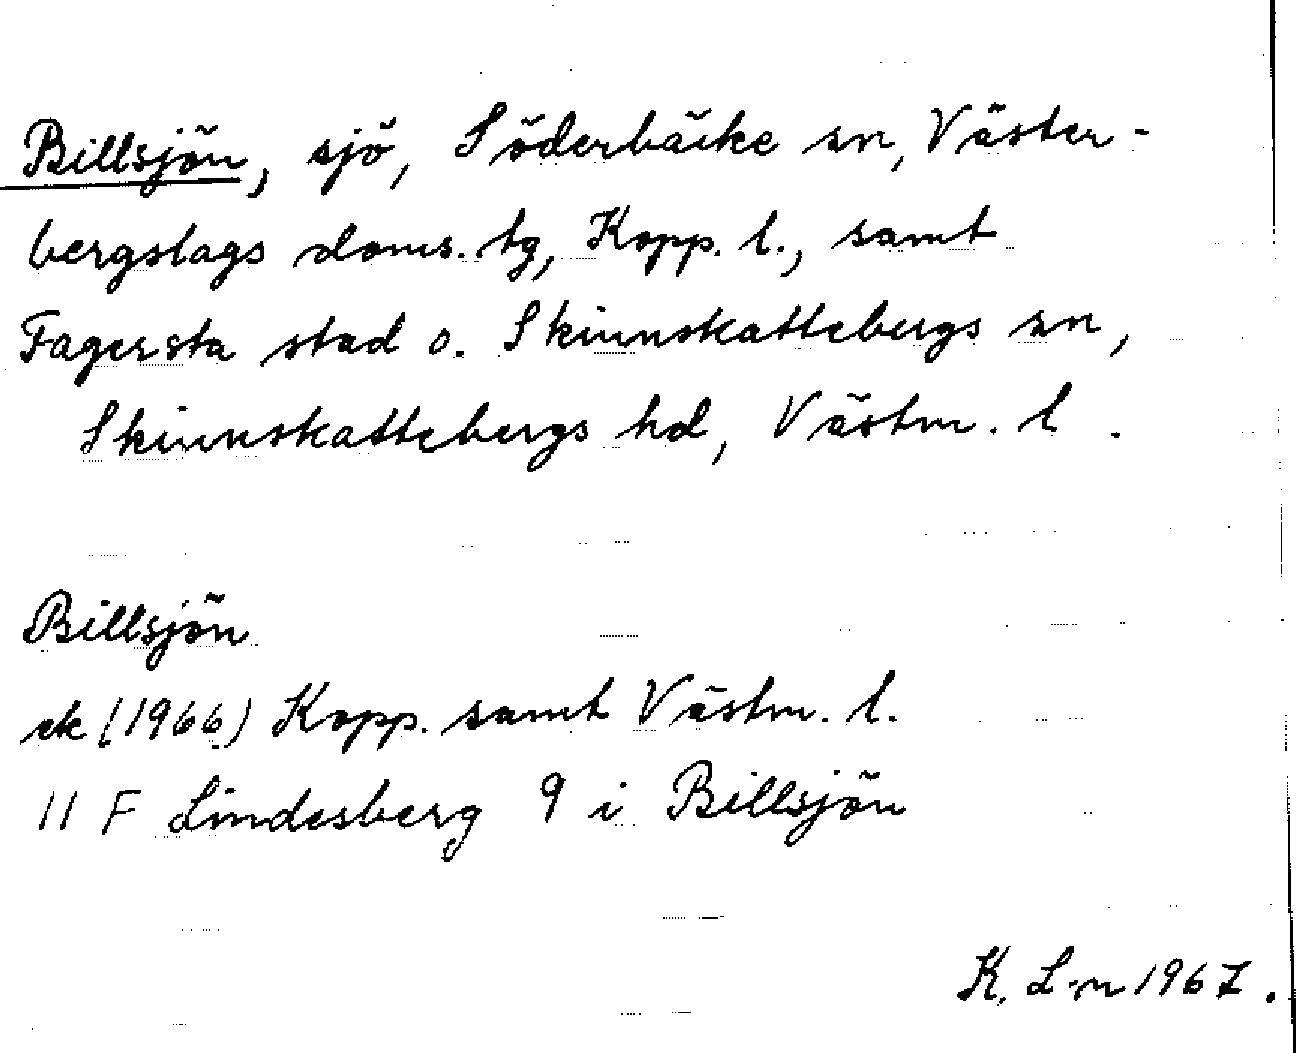 Billsjön, sjö, Söderbärke sn, Väster-
bergslags doms. tg, Kopp. l., samt
Fagersta stad o. Skinnskattebergs sn,
Skinnskattebergs hd, Västm. l.
Billsjön
ek (1966) Kopp. samt Västm. l.
11 F Lindesberg 9 i Billsjön
K. L-n 1967.